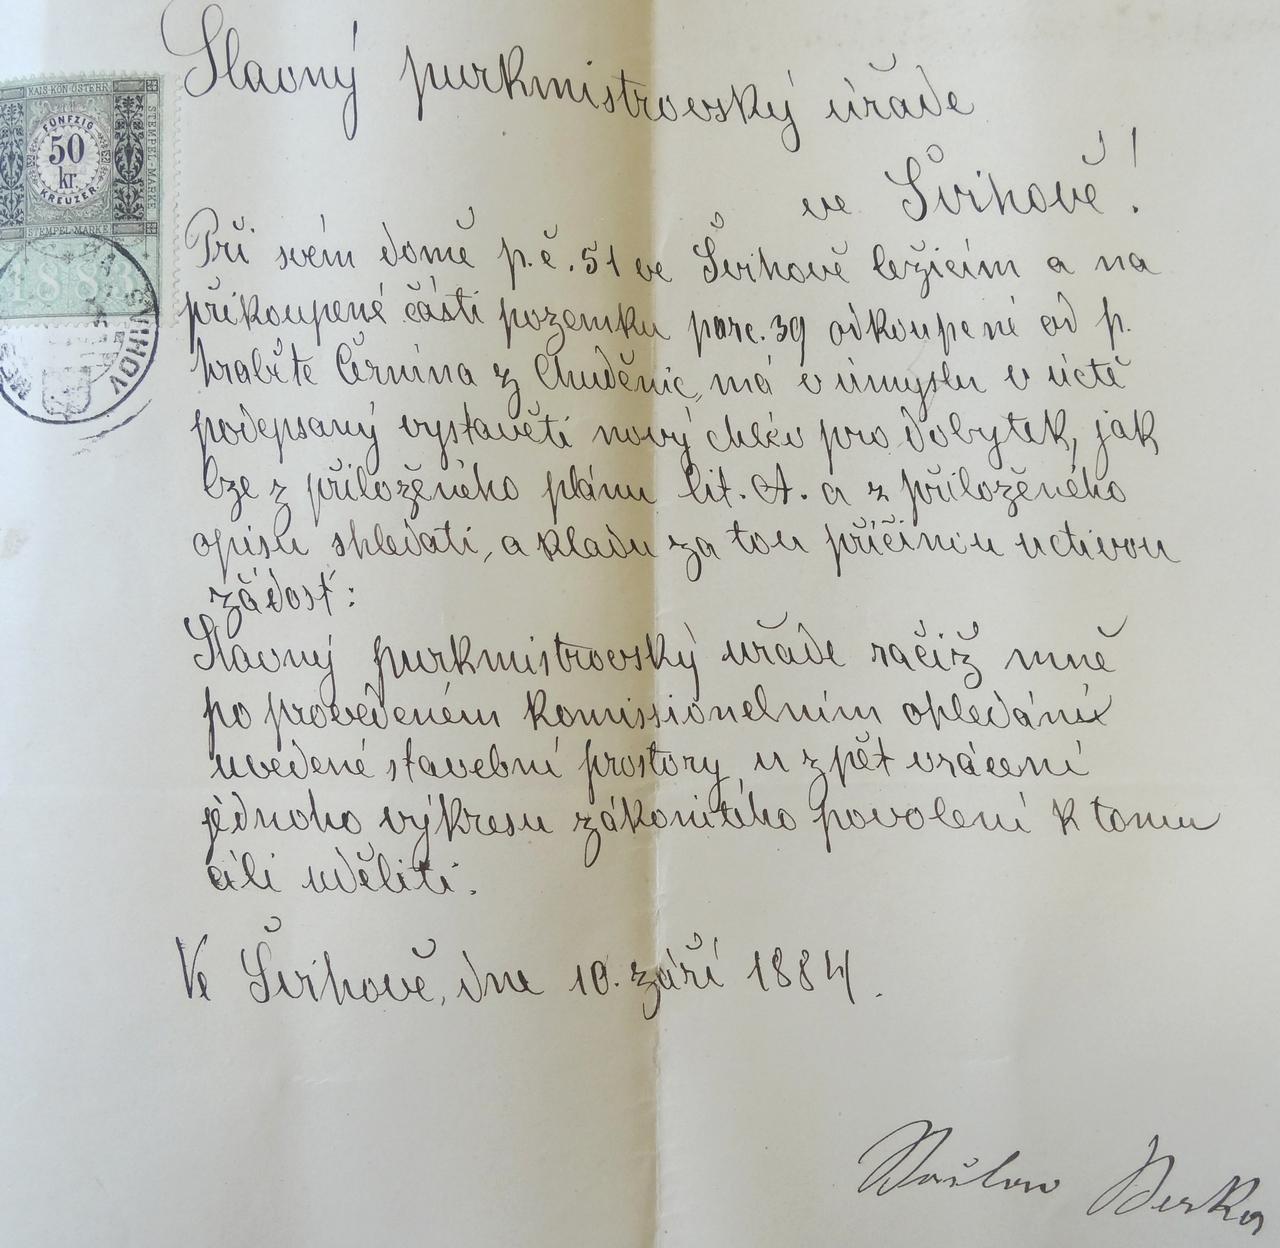 Slavný purkmistrovský úřade
ve Švihově!
KAIS. KÖN. ÖSTERR.
STEMPEL-MARKE
FÜNFZIG
50
kr.
KREUZER
STEMPEL-MARKE
1883
ŠVIHOV
Při svém domě p.č. 51 ve Švihově ležícím a na
přikoupené části pozemku parc. 39 odkoupené od p.
hraběte Černína z Chuděnic, má v úmyslu v úctě
podepsaný vystavěti nový chlév pro dobytek, jak
lze z přiloženého plánu lit. A. a z přiloženého
opisu shledati, a kladu za tou příčinou uctivou
žádost:
Slavný purkmistrovský úřade račiž mně
po provedeném komissionelním ohledání
uvedené stavební prostory u zpět vrácení
jednoho výkresu zákonitého povolení k tomu
cíli uděliti.
Ve Švihově, dne 10. září 1884.